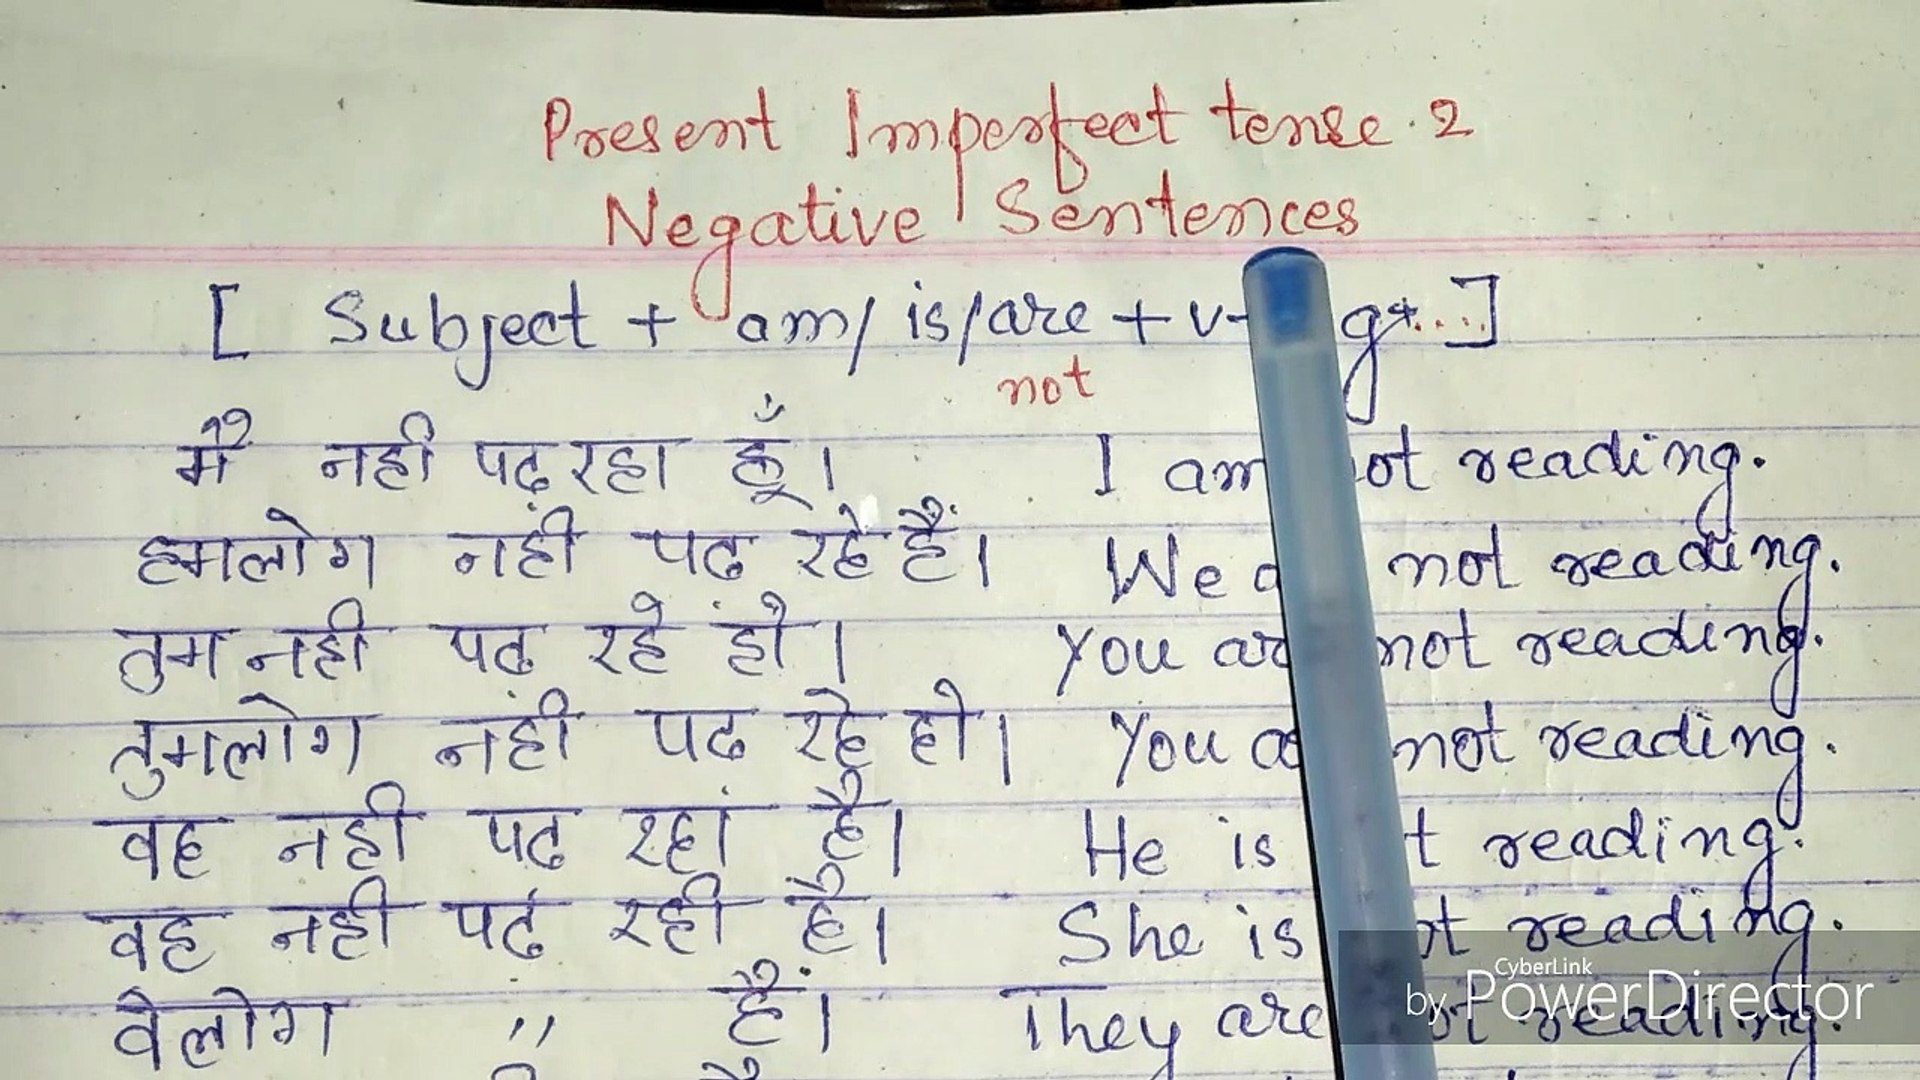 Present Imperfect tense. 2
Negative Sentences
[ Subject + am/ is/are + v+ g+....]
not
मै नही पढ़ रहा हूँ। I am not reading.
हमलोग नही पढ रहे हैं। We a not reading.
तुम नही पढ रहे हो। You are not reading.
तुमलोग नही पढ रहे हो। You a not reading.
वह नही पढ रहा है। He is t reading.
वह नही पढ रही है। She is ot reading.
वेलोग " हैं। They are ot reading.
CyberLink
by PowerDirector